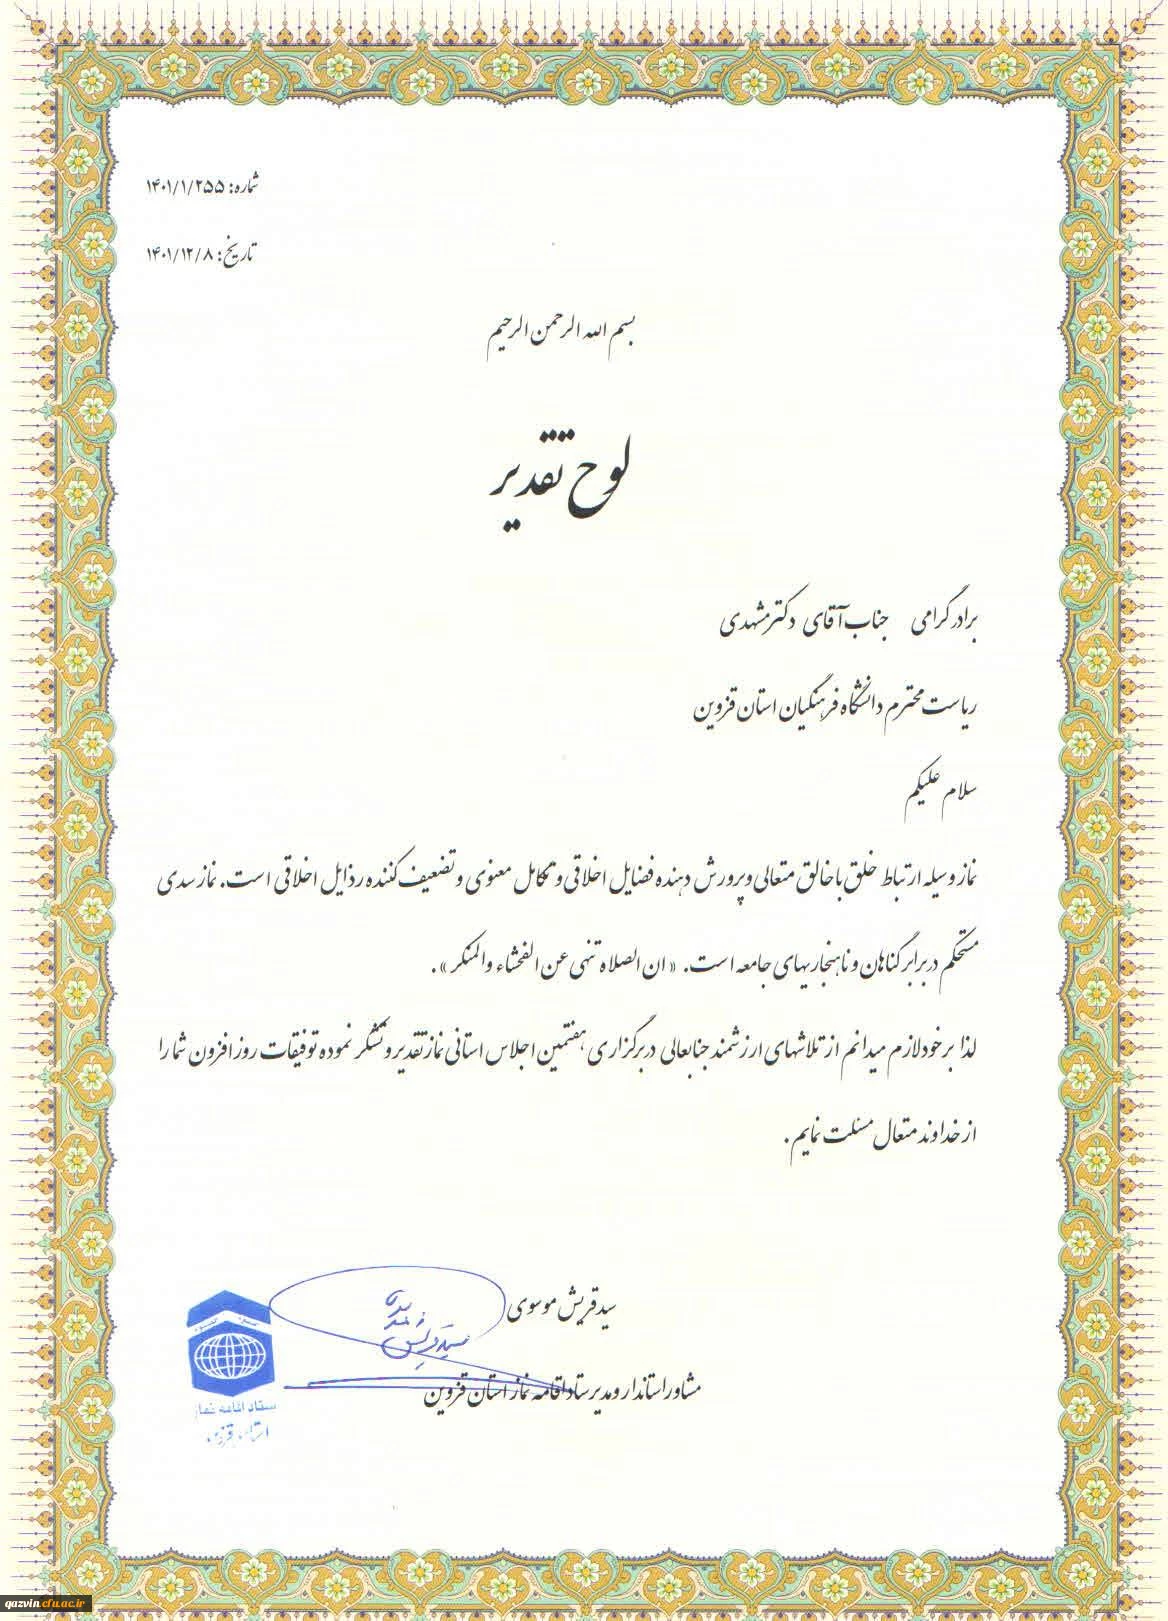 شماره: ۱۴۰۱/۱/۲۵۵
تاریخ: ۱۴۰۱/۱۲/۸
بسم الله الرحمن الرحیم
لوح تقدیر
برادر گرامی جناب آقای دکتر مشهدی
ریاست محترم دانشگاه فرهنگیان استان قزوین
سلام علیکم
نماز وسیله ارتباط خلق با خالق متعالی و پرورش دهنده فضایل اخلاقی و تکامل معنوی و تضعیف کننده رذایل اخلاقی است. نماز سدی
مستحکم در برابر گناهان و ناهنجاریهای جامعه است. « ان الصلاه تنهی عن الفحشاء والمنکر ».
لذا بر خود لازم میدانم از تلاشهای ارزشمند جنابعالی در برگزاری هفتمین اجلاس استانی نماز تقدیر و تشکر نموده توفیقات روز افزون شما را
از خداوند متعال مسئلت نمایم.
سید قریش موسوی
مشاور استاندار و مدیر ستاد اقامه نماز استان قزوین
ستاد اقامه نماز
استان قزوین
qazvin.cfu.ac.ir